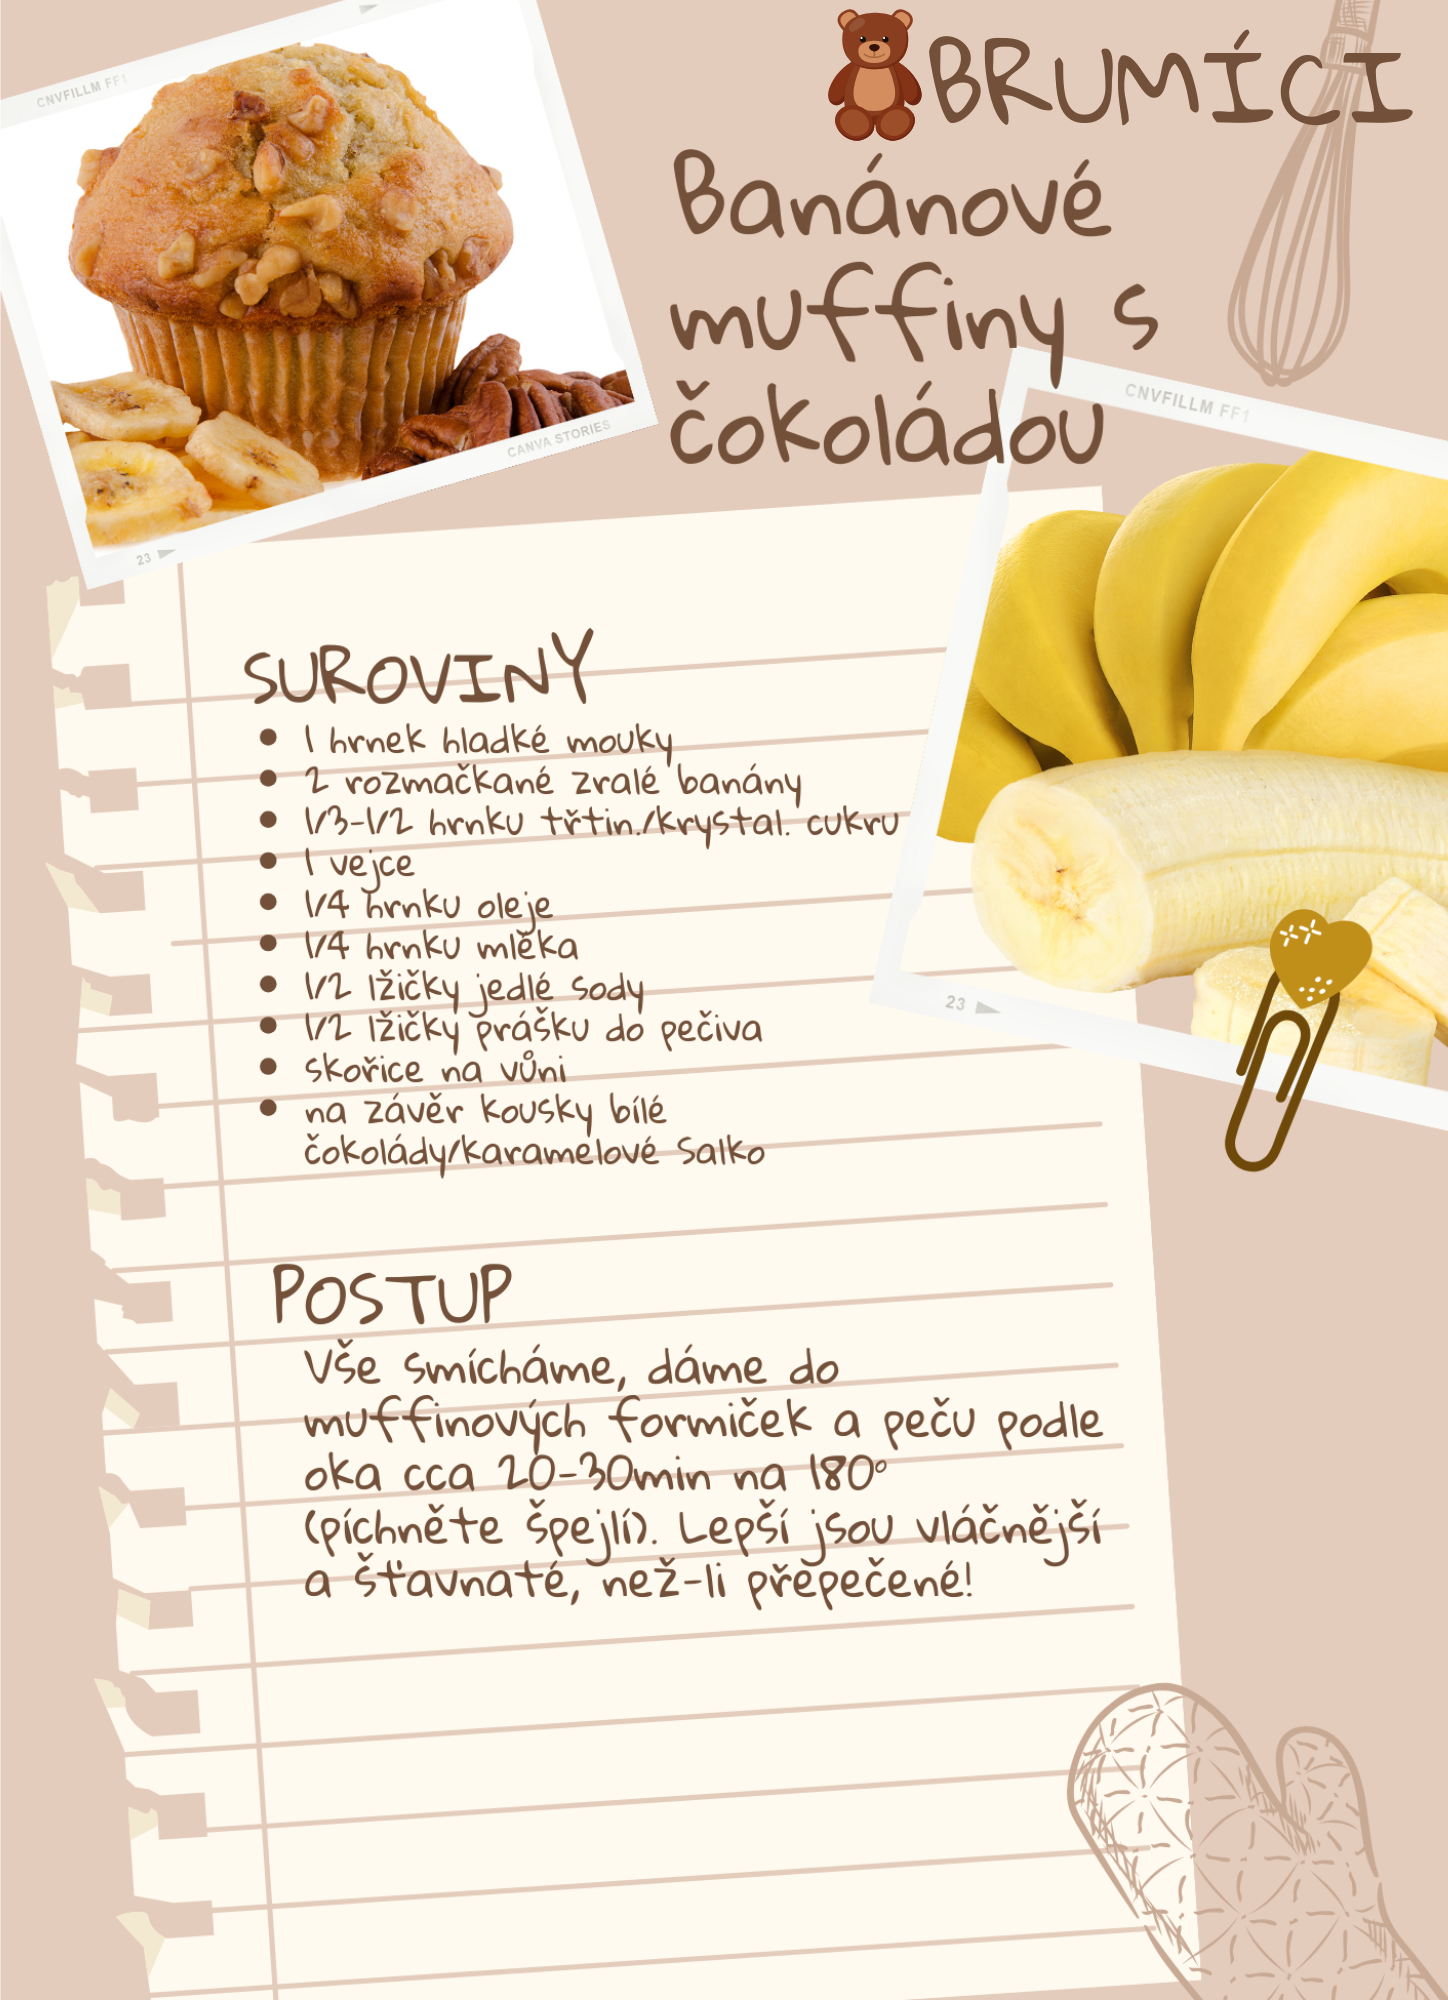 CNVFILLM FF1
BRUMÍCI
Banánové
muffiny s
čokoládou
CNVFILLM FF1
CANVA STORIES
23
SUROVINY
1 hrnek hladké mouky
2 rozmačkané zralé banány
1/3-1/2 hrnku třtin./krystal. cukru
1 vejce
1/4 hrnku oleje
1/4 hrnku mléka
1/2 lžičky jedlé sody
1/2 lžičky prášku do pečiva
skořice na vůni
na závěr kousky bílé
čokolády/karamelové Salko
23
POSTUP
Vše smícháme, dáme do
muffinových formiček a peču podle
oka cca 20-30min na 180°
(píchněte špejlí). Lepší jsou vláčnější
a šťavnaté, než-li přepečené!